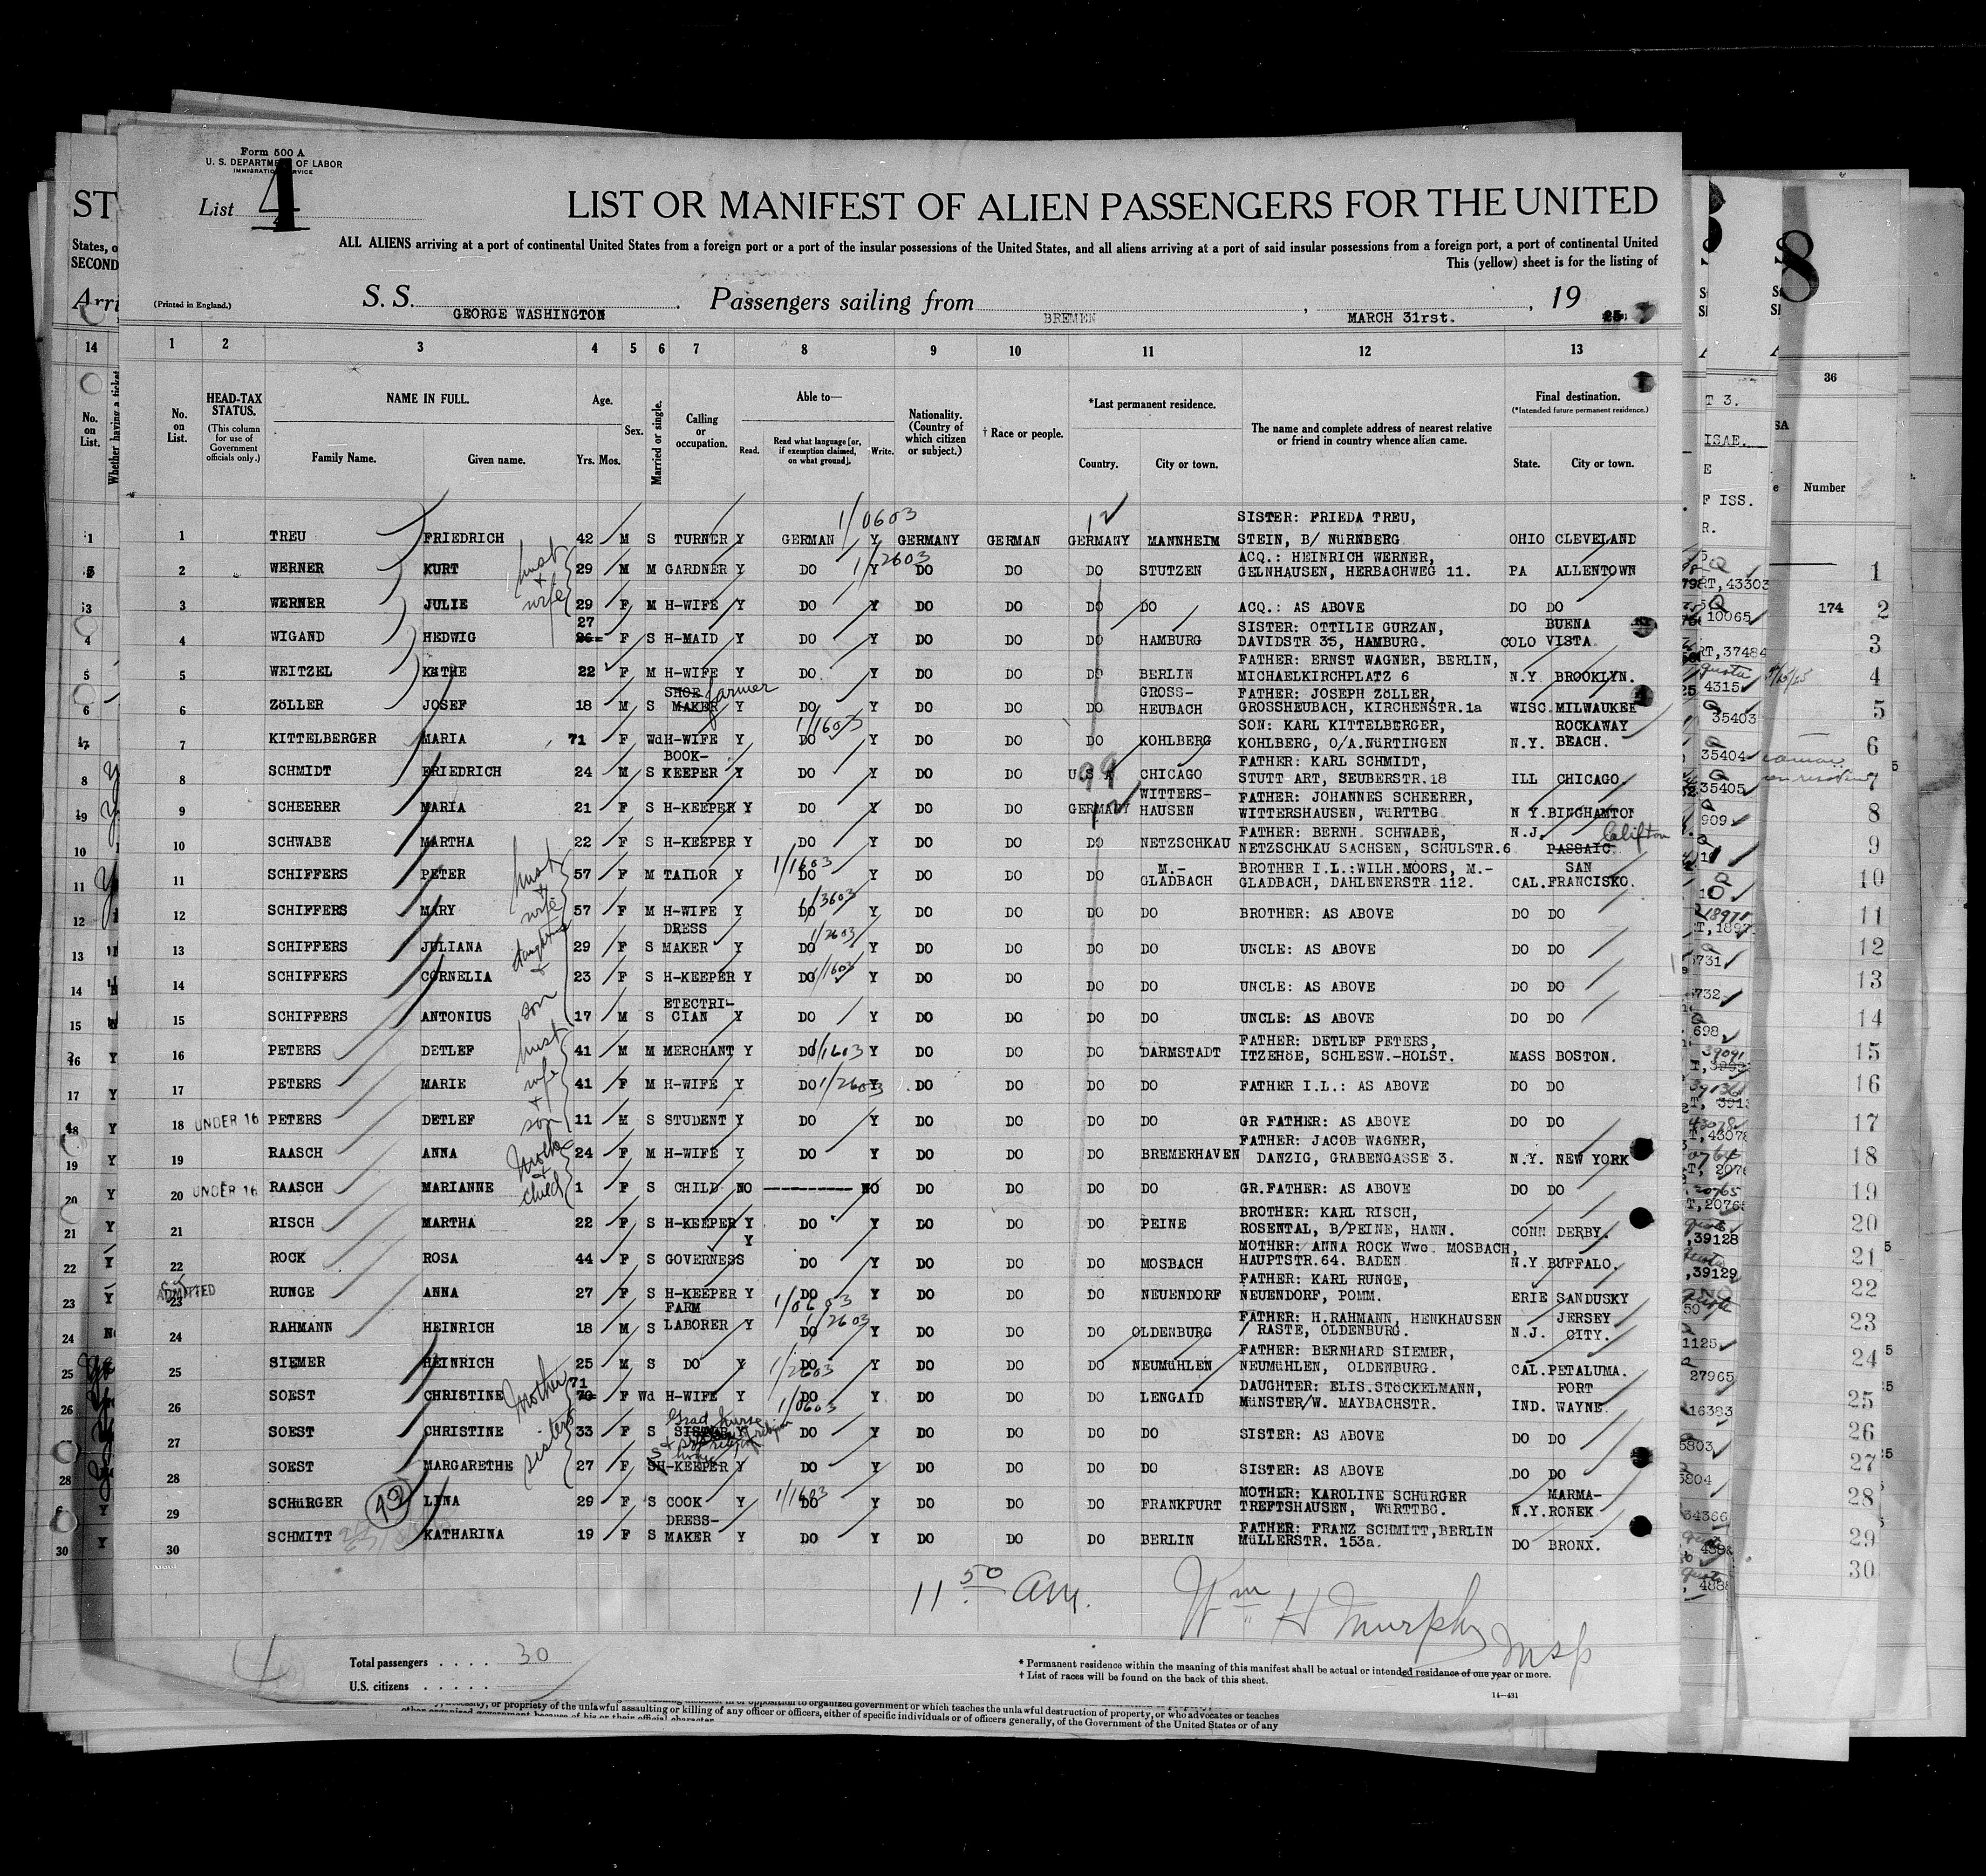 Form 500 A
U. S. DEPARTMENT OF LABOR
IMMIGRATION SERVICE
List 4
LIST OR MANIFEST OF ALIEN PASSENGERS FOR THE UNITED
ALL ALIENS arriving at a port of continental United States from a foreign port or a port of the insular possessions of the United States, and all aliens arriving at a port of said insular possessions from a foreign port, a port of continental United
This (yellow) sheet is for the listing of
(Printed in England.)
S. S. GEORGE WASHINGTON Passengers sailing from BREMEN , MARCH 31rst. , 19 25
1 2 3 4 5 6 7 8 9 10 11 12 13
No. on List.
HEAD-TAX STATUS.
(This column for use of Government officials only.)
NAME IN FULL.
Family Name. Given name.
Age.
Yrs. Mos.
Sex.
Married or single.
Calling or occupation.
Able to—
Read. Read what language [or, if exemption claimed, on what ground]. Write.
Nationality. (Country of which citizen or subject.)
† Race or people.
*Last permanent residence.
Country. City or town.
The name and complete address of nearest relative or friend in country whence alien came.
Final destination.
(*Intended future permanent residence.)
State. City or town.
1 TREU FRIEDRICH 42 M S TURNER Y GERMAN 1/0603 Y GERMANY GERMAN GERMANY MANNHEIM SISTER: FRIEDA TREU, STEIN, B/ NüRNBERG OHIO CLEVELAND
2 WERNER KURT husb + wife 29 M M GARDNER Y DO 1/2603 Y DO DO DO STUTZEN ACQ.: HEINRICH WERNER, GELNHAUSEN, HERBACHWEG 11. PA ALLENTOWN
3 WERNER JULIE 29 F M H-WIFE Y DO Y DO DO DO DO ACQ.: AS ABOVE DO DO
4 WIGAND HEDWIG 27 26 F S H-MAID Y DO Y DO DO DO HAMBURG SISTER: OTTILIE GURZAN, DAVIDSTR 35, HAMBURG. COLO BUENA VISTA.
5 WEITZEL KäTHE 22 F M H-WIFE Y DO Y DO DO DO BERLIN FATHER: ERNST WAGNER, BERLIN, MICHAELKIRCHPLATZ 6 N.Y. BROOKLYN.
6 ZöLLER JOSEF 18 M S SHOE MAKER farmer Y DO Y DO DO DO GROSS-HEUBACH FATHER: JOSEPH ZöLLER, GROSSHEUBACH, KIRCHENSTR.1a WISC. MILWAUKEE
7 KITTELBERGER MARIA 71 F Wd H-WIFE Y 1/1603 DO Y DO DO DO KOHLBERG SON: KARL KITTELBERGER, KOHLBERG, O/A.NüRTINGEN N.Y. ROCKAWAY BEACH.
8 SCHMIDT FRIEDRICH 24 M S BOOK-KEEPER Y DO Y DO DO U S A 99 CHICAGO FATHER: KARL SCHMIDT, STUTT ART, SEUBERSTR.18 ILL CHICAGO
9 SCHEERER MARIA 21 F S H-KEEPER Y DO Y DO DO GERMANY WITTERS-HAUSEN FATHER: JOHANNES SCHEERER, WITTERSHAUSEN, WüRTTBG. N Y. BINGHAMTON
10 SCHWABE MARTHA 22 F S H-KEEPER Y DO Y DO DO DO NETZSCHKAU FATHER: BERNH. SCHWABE, NETZSCHKAU SACHSEN, SCHULSTR.6 N.J. PASSAIC Clifton
11 SCHIFFERS PETER husb + wife daughters + son 57 F M TAILOR Y 1/1603 DO Y DO DO DO M.-GLADBACH BROTHER I.L.:WILH.MOORS, M.-GLADBACH, DAHLENERSTR 112. CAL. SAN FRANCISKO.
12 SCHIFFERS MARY 57 F M H-WIFE Y 1/3603 DO Y DO DO DO DO BROTHER: AS ABOVE DO DO
13 SCHIFFERS JULIANA 29 F S DRESS MAKER Y DO 1/2603 Y DO DO DO DO UNCLE: AS ABOVE DO DO
14 SCHIFFERS CORNELIA 23 F S H-KEEPER Y DO 1/1603 Y DO DO DO DO UNCLE: AS ABOVE DO DO
15 SCHIFFERS ANTONIUS 17 M S ETECTRI-CIAN Y DO Y DO DO DO DO UNCLE: AS ABOVE DO DO
16 PETERS DETLEF husb wife + son 41 M M MERCHANT Y DO 1/1603 Y DO DO DO DARMSTADT FATHER: DETLEF PETERS, ITZEHöE, SCHLESW.-HOLST. MASS BOSTON.
17 PETERS MARIE 41 F M H-WIFE Y DO 1/2603 Y DO DO DO DO FATHER I.L.: AS ABOVE DO DO
18 UNDER 16 PETERS DETLEF 11 M S STUDENT Y DO Y DO DO DO DO GR FATHER: AS ABOVE DO DO
19 RAASCH ANNA Mother + child 24 F M H-WIFE Y DO Y DO DO DO BREMERHAVEN FATHER: JACOB WAGNER, DANZIG, GRABENGASSE 3. N.Y. NEW YORK
20 UNDER 16 RAASCH MARIANNE 1 F S CHILD NO ---------- NO DO DO DO DO GR.FATHER: AS ABOVE DO DO
21 RISCH MARTHA 22 F S H-KEEPER Y DO Y DO DO DO PEINE BROTHER: KARL RISCH, ROSENTAL, B/PEINE, HANN. CONN DERBY.
22 ROCK ROSA 44 F S GOVERNESS Y DO Y DO DO DO MOSBACH MOTHER: ANNA ROCK Wwo. MOSBACH, HAUPTSTR.64. BADEN N.Y. BUFFALO.
23 ADMITTED RUNGE ANNA 27 F S H-KEEPER Y DO 1/0603 Y DO DO DO NEUENDORF FATHER: KARL RUNGE, NEUENDORF, POMM. ERIE SANDUSKY
24 RAHMANN HEINRICH 18 M S FARM LABORER Y 1/2603 DO Y DO DO DO OLDENBURG FATHER: H.RAHMANN, HENKHAUSEN / RASTE, OLDENBURG. N.J. JERSEY CITY.
25 SIEMER HEINRICH 25 M S DO Y DO 1/2603 Y DO DO DO NEUMüHLEN FATHER: BERNHARD SIEMER, NEUMüHLEN, OLDENBURG. CAL. PETALUMA.
26 SOEST CHRISTINE Mother sisters 71 70 F Wd H-WIFE Y DO 1/0603 Y DO DO DO LENGAID DAUGHTER: ELIS.STöCKELMANN, MüNSTER/W. MAYBACHSTR. IND. FORT WAYNE.
27 SOEST CHRISTINE 33 F S Grad nurse Y DO Y DO DO DO DO SISTER: AS ABOVE DO DO
28 SOEST MARGARETHE 27 F S H-KEEPER Y DO Y DO DO DO DO SISTER: AS ABOVE DO DO
29 SCHüRGER LINA 29 F S COOK Y 1/1603 DO Y DO DO DO FRANKFURT MOTHER: KAROLINE SCHüRGER TREFTSHAUSEN, WüRTTBG. N.Y. MARMA-RONEK
30 SCHMITT KATHARINA 19 F S DRESS-MAKER Y DO Y DO DO DO BERLIN FATHER: FRANZ SCHMITT,BERLIN MüLLERSTR. 153a. DO BRONX.
11 50 AM. Wm H Murphy Insp
Total passengers . . . . 30
U.S. citizens . . . . .
* Permanent residence within the meaning of this manifest shall be actual or intended residence of one year or more.
† List of races will be found on the back of this sheet.
14—431
or propriety of the unlawful assaulting or killing of any officer or officers, either of specific individuals or of officers generally, of the Government of the United States or of any